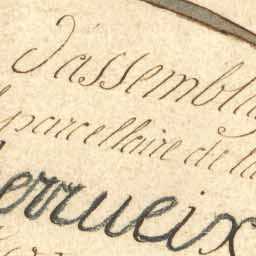 d'assembla
parcellaire de la
errueix